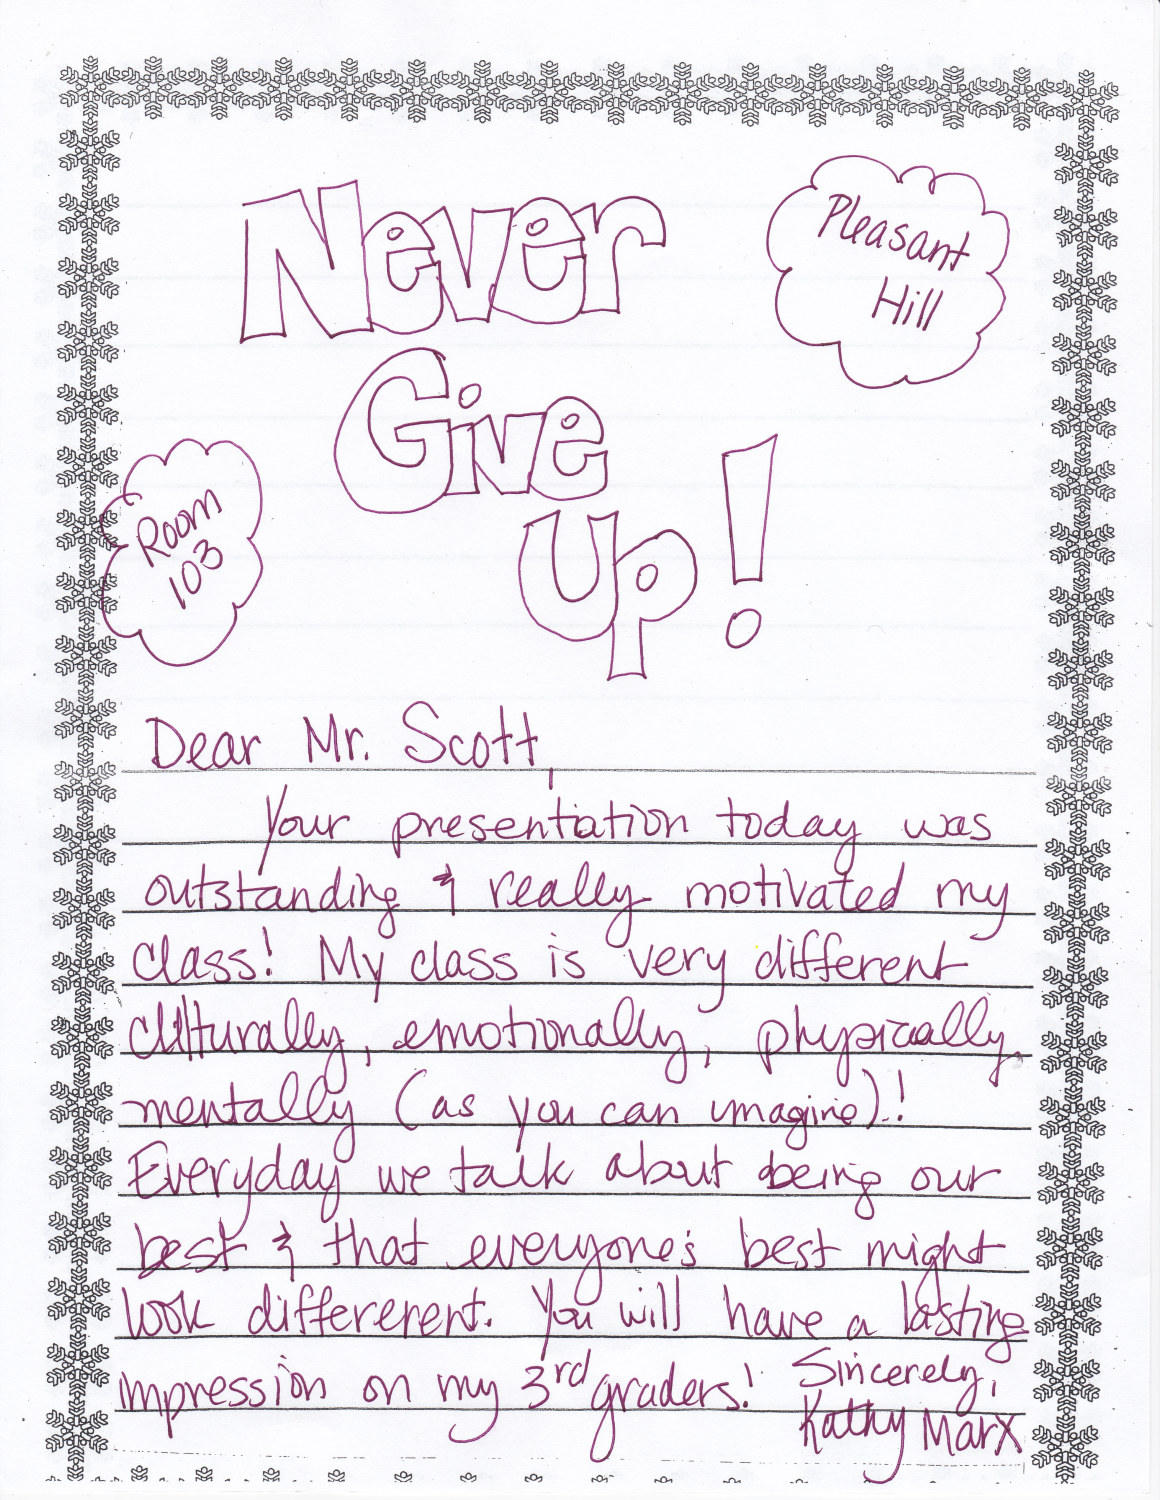 Never
Give
Up!
Pleasant
Hill
Room
103
Dear Mr. Scott,
Your presentiation today was
outstanding & really motivated my
class! My class is very different
culturally, emotionally, physically,
mentally (as you can imagine)!
Everyday we talk about being our
best & that everyone's best might
look differerent. You will have a lasting
impression on my 3rd graders!
Sincerely,
Kathy Marx